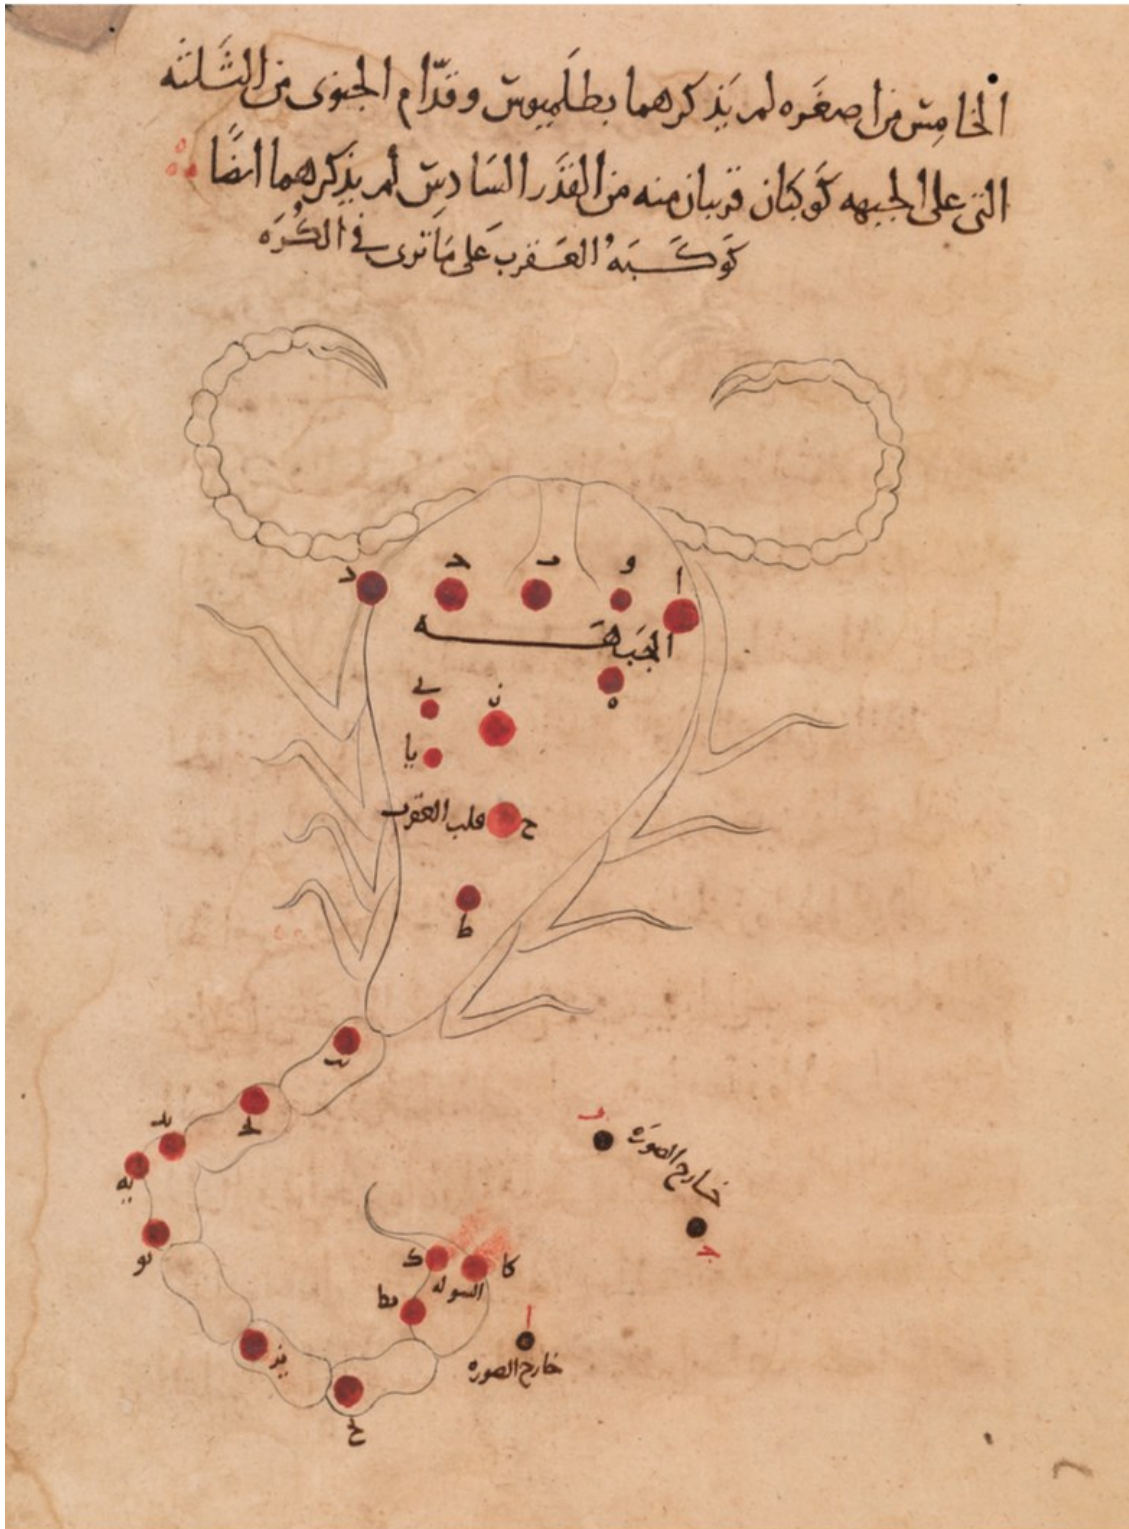 الخامس من اصغره لم يذكرهما بطلميوس وقدّام الجنوبى من الثلثه
التى على الجبهه كوكبان قريبان منه من القدر السادس لم يذكرهما ايضًا
كوكبة العقرب على ما ترى فى الكره
ا
و
ب
ح
د
الجبهه
ه
ز
ى
يا
ح
قلب العقرب
ط
يب
يج
يد
يه
يو
يز
يح
يط
ك
كا
السوله
ا
خارج الصوره
ب
خارج الصوره
ج